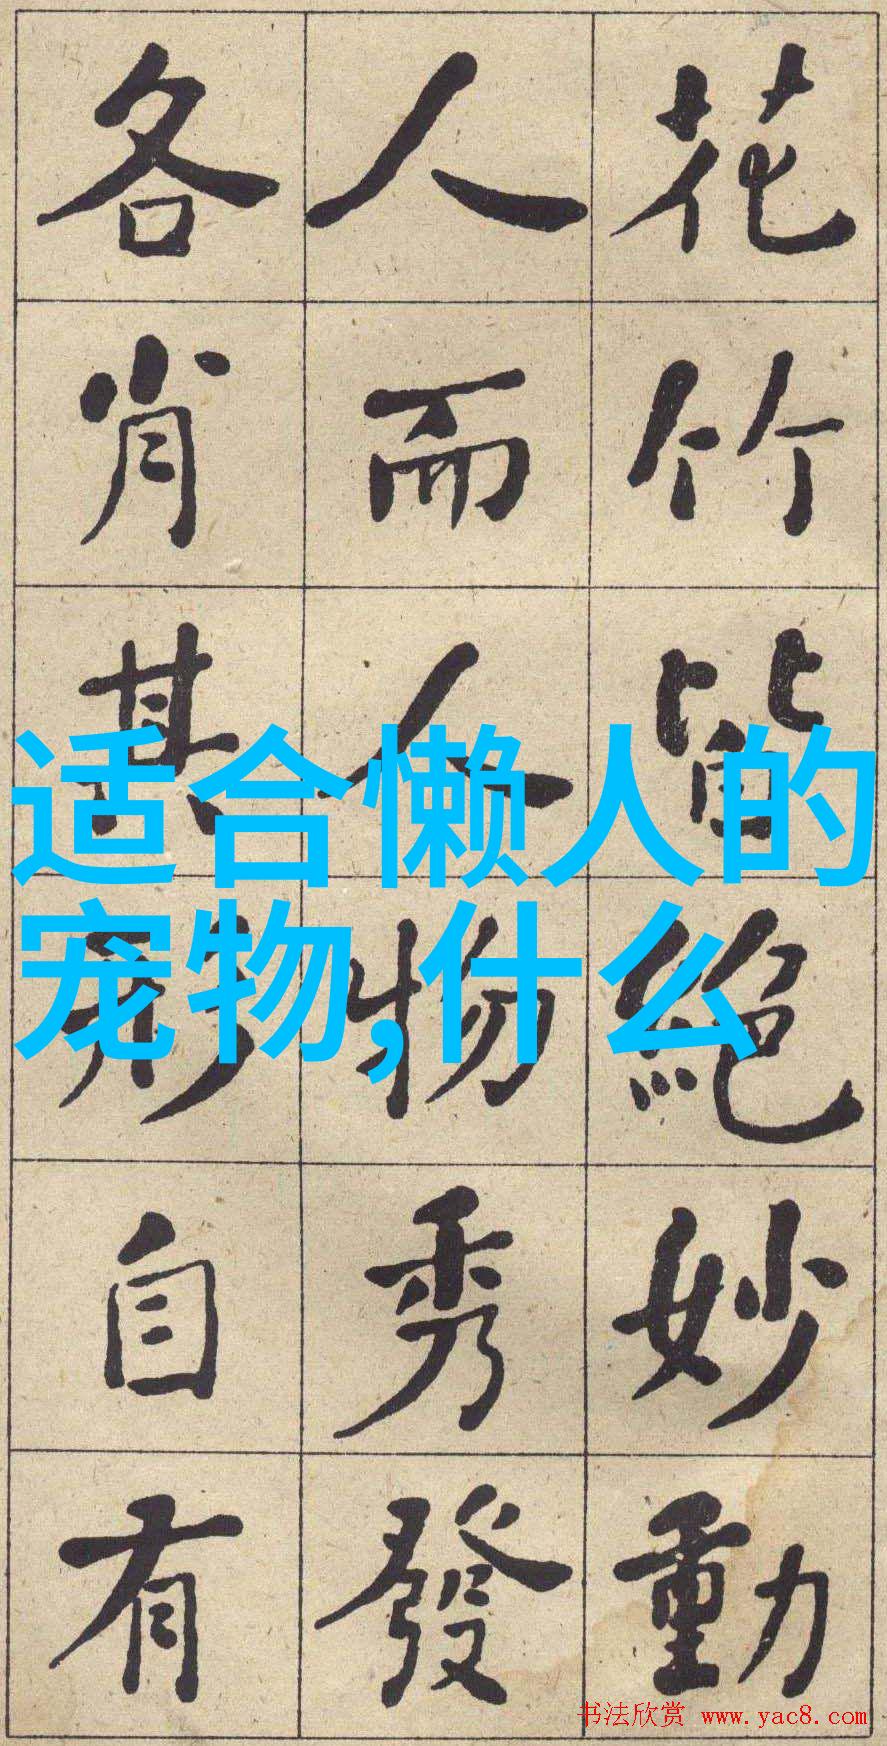 花竹皆絕妙動
人而人物秀發
各肖其形自有
适合懒人的
宠物,什么
书法欣赏 www.yac8.com